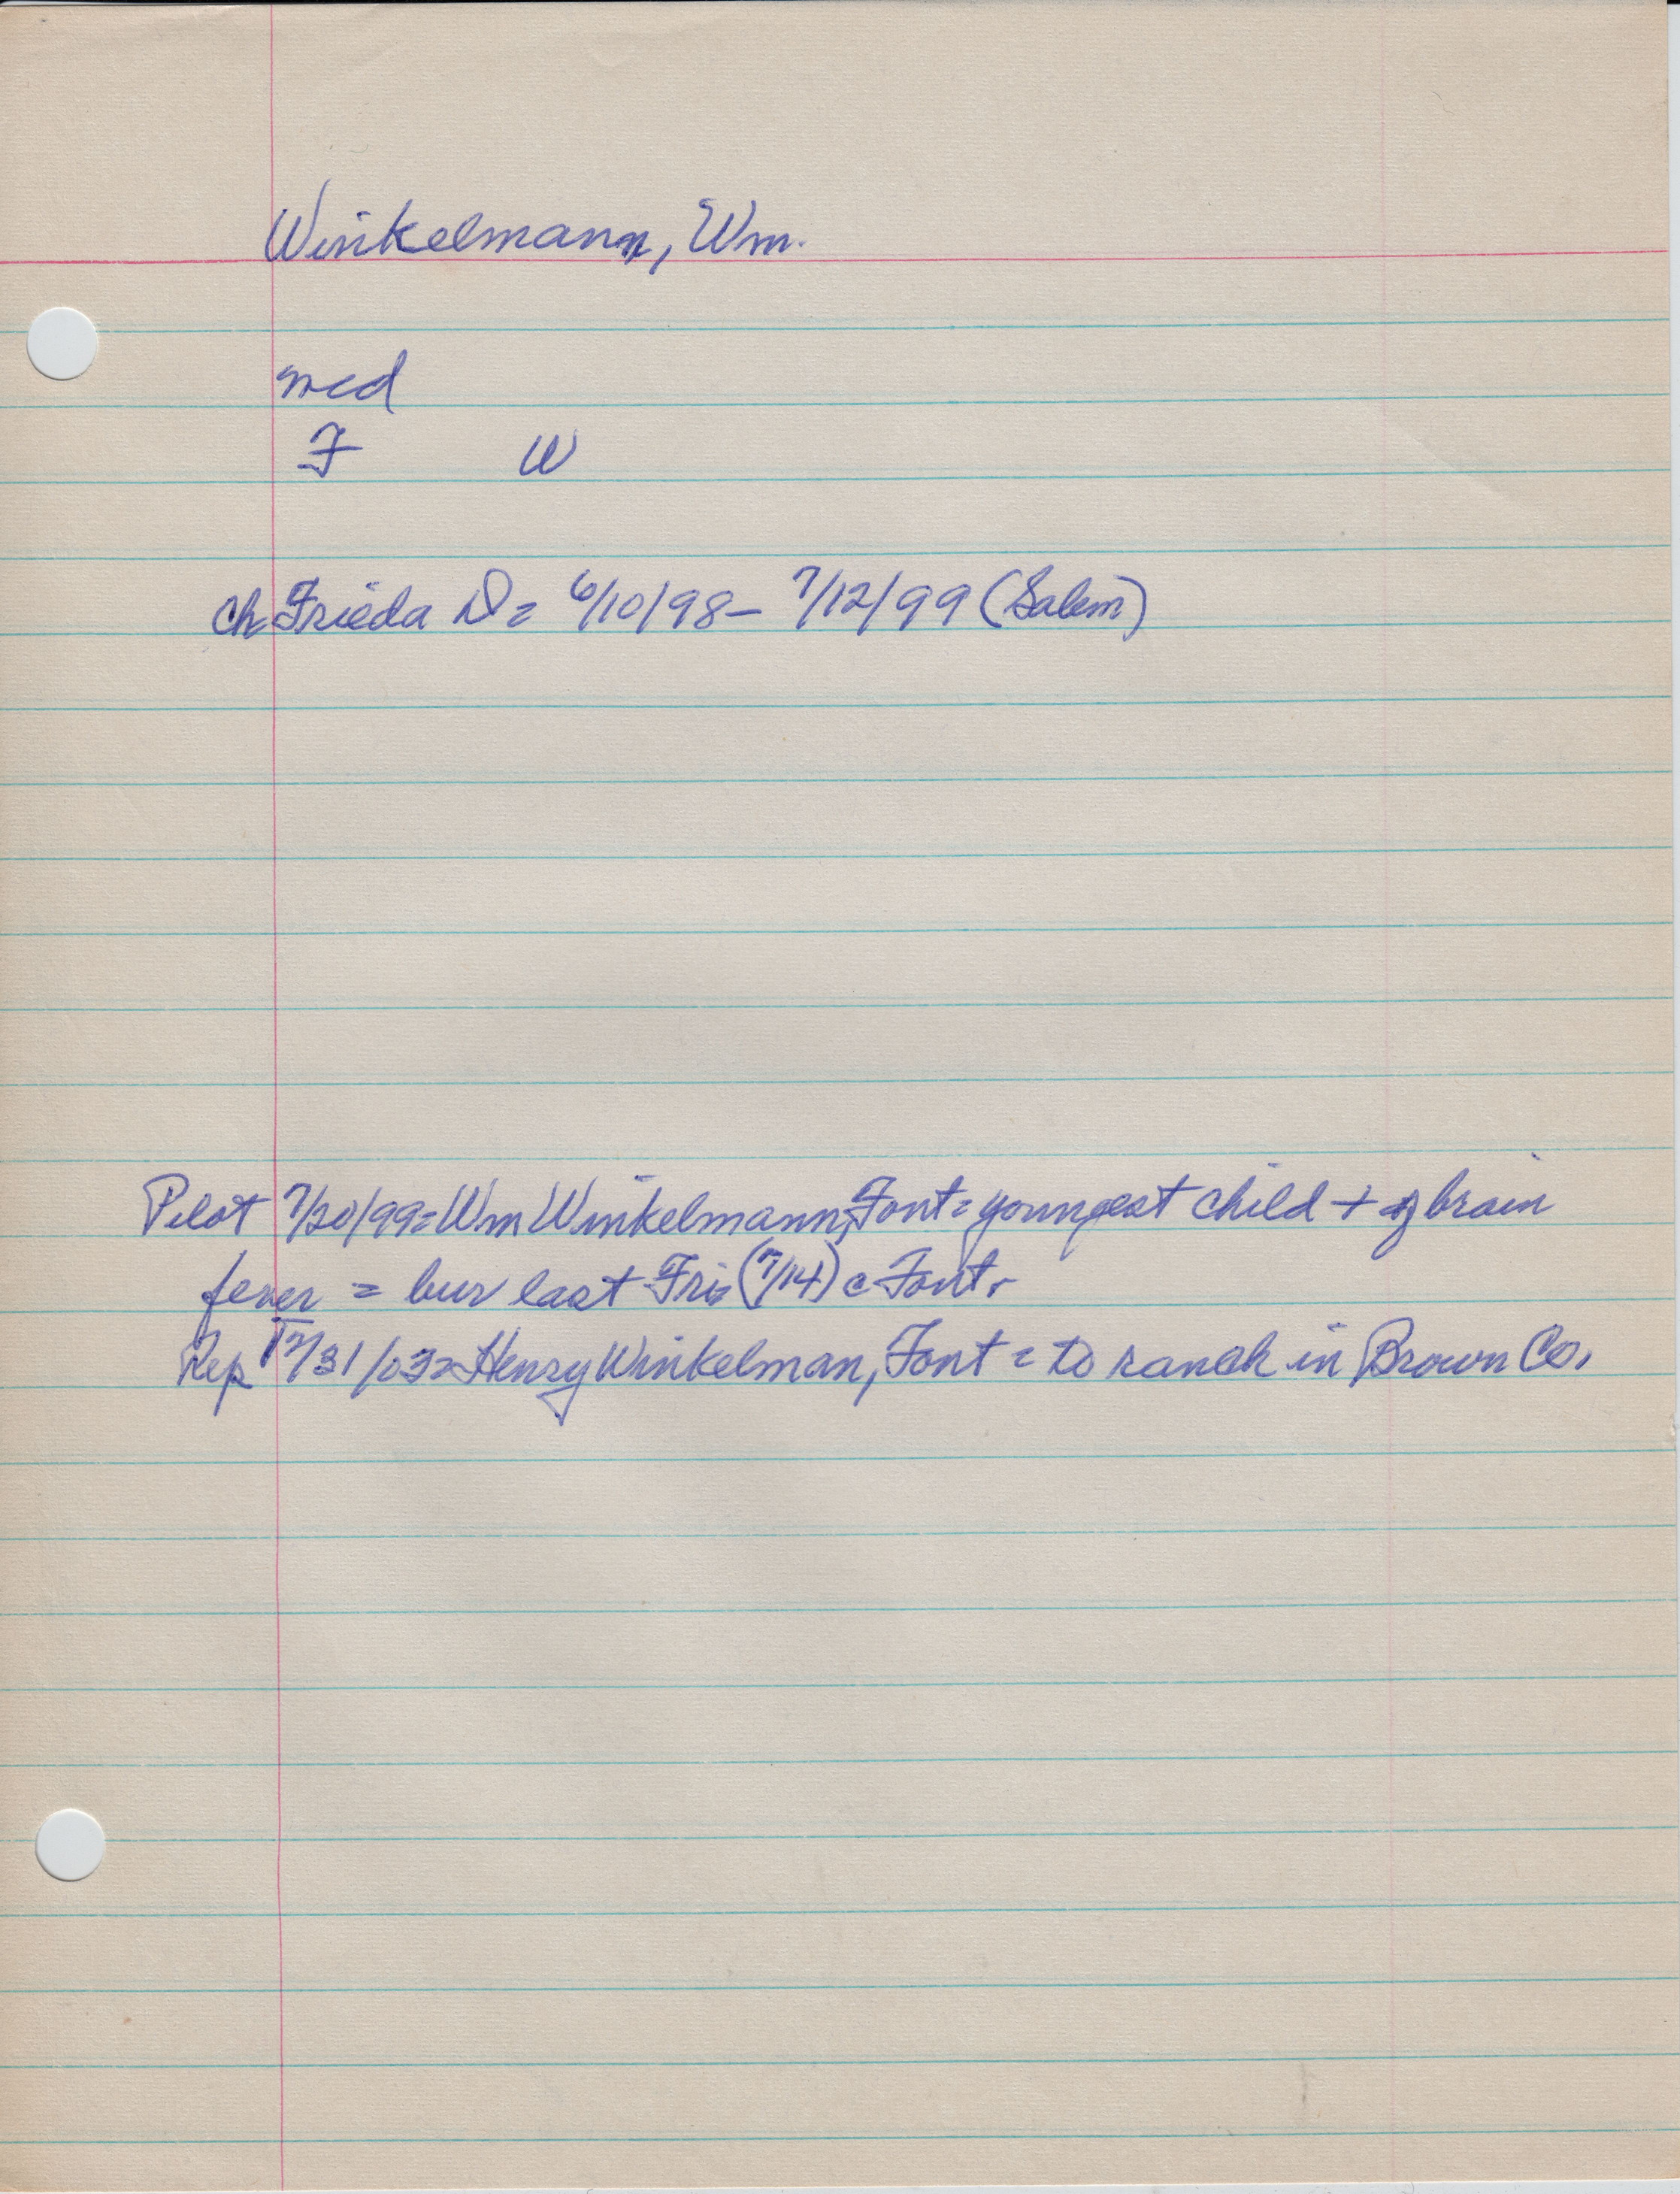 Winkelmann, Wm.
med
F W
ch Frieda D = 6/10/98 - 7/12/99 (Salem)
Pilot 7/20/99 = Wm Winkelmann, Font = youngest child + of brain
fever = bur last Fri (7/14) c Font.
Rep 7/31/03 = Henry Winkelman, Font = to ranch in Brown Co.